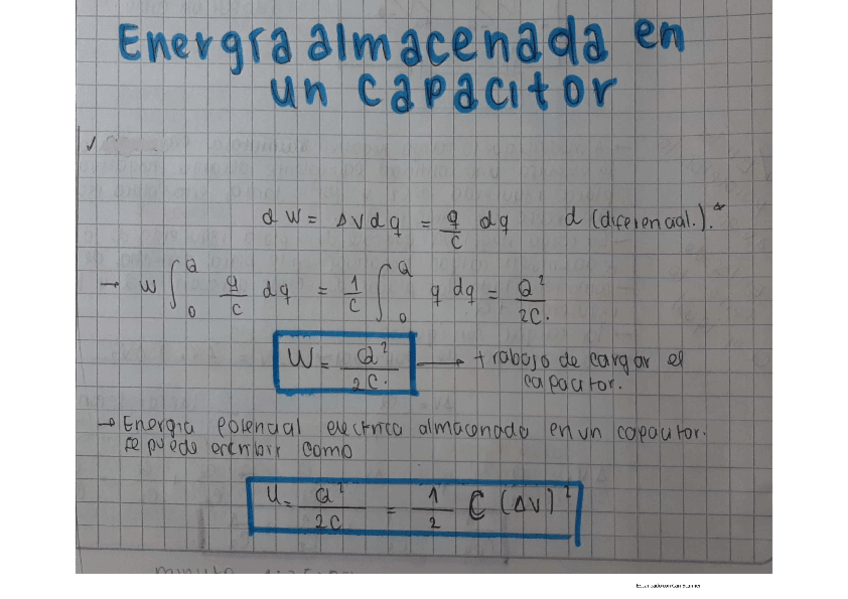 Energía almacenada en
un capacitor
dW = ΔVdq = q/C dq d (diferencial.).*
→ W ∫₀^Q q/C dq = 1/C ∫₀^Q q dq = Q²/2C.
W = Q²/2C. → trabajo de cargar el
capacitor.
→ Energia potencial electrica almacenada en un capacitor.
se puede escribir como
U = Q²/2C = 1/2 C (ΔV)²